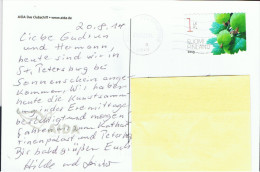 AIDA Das Clubschiff • www.aida.de
20.8.14
Liebe Gudrun
und Hermann,
heute sind wir in
St. Petersburg bei
Sonnenschein ange-
kommen. Wir haben
heute die Kunstsamm-
lungen der Eremitage
besichtigt und morgen
fahren wir zum Katha-
rinenpalast und Peterhof
Bis bald grüßen Euch
Hilde und
1
SUOMI
FINLAND